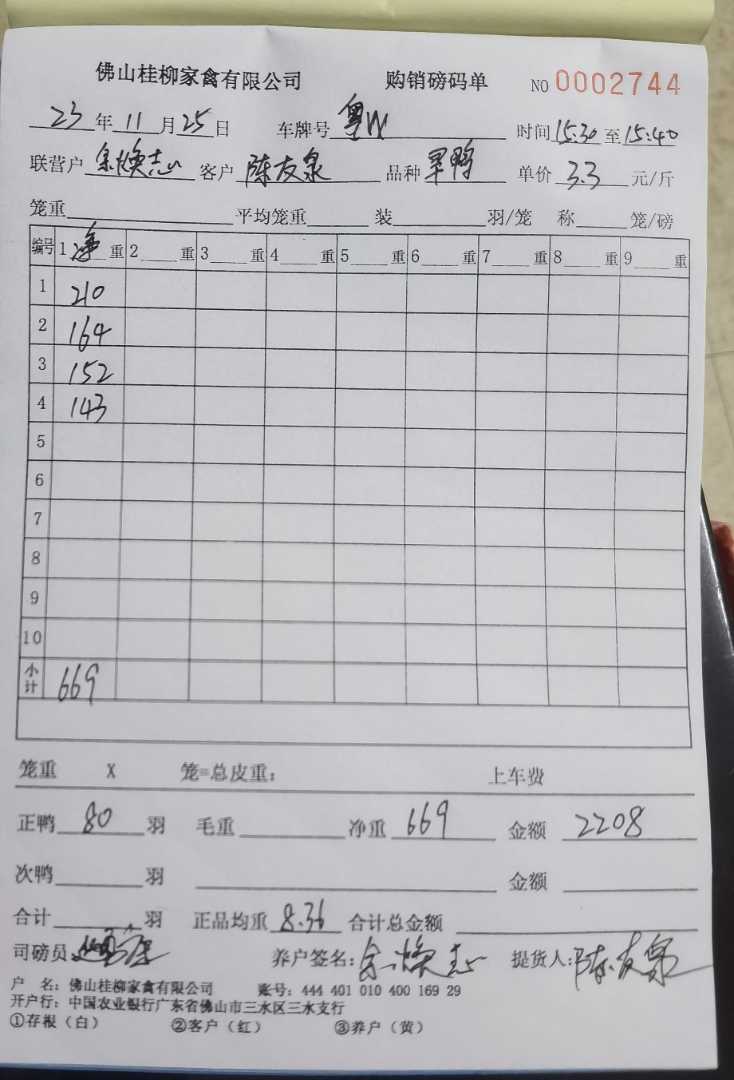 佛山桂柳家禽有限公司 购销磅码单 NO 0002744
23年11月25日 车牌号 粤W 时间15:30至15:40
联营户 余焕志 客户 陈友泉 品种 单价 3.3 元/斤
笼重 平均笼重 装 羽/笼 称 笼/磅
编号 1净重 2 重 3 重 4 重 5 重 6 重 7 重 8 重 9 重
1 210
2 164
3 152
4 143
5
6
7
8
9
10
小计 669
笼重 X 笼=总皮重: 上车费
正鸭 80 羽 毛重 净重 669 金额 2208
次鸭 羽 金额
合计 羽 正品均重 8.36 合计总金额
司磅员: 养户签名: 余焕志 提货人: 陈友泉
户 名: 佛山桂柳家禽有限公司 账号: 444 401 010 400 169 29
开户行: 中国农业银行广东省佛山市三水区三水支行
①存根(白) ②客户(红) ③养户(黄)